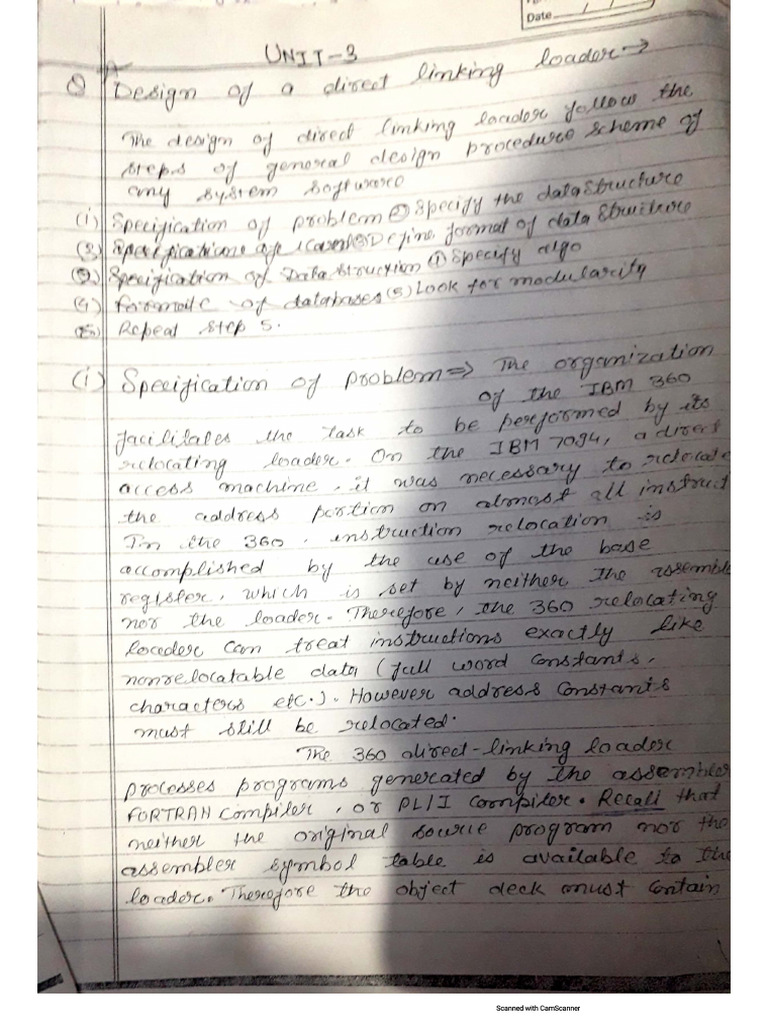 Date / /
UNIT-3
Q Design of a direct linking loader →
The design of direct linking loader follow the
steps of general design procedure scheme of
any system software
(1) Specification of problem (2) Specify the data structure
(2) (3) Define format of data structure
(3) Specification of Data Struction (4) Specify algo
(4) Formate of databases (5) Look for modularity
Repeat step 5.
(i) Specification of problem ⇒ The organization
of the IBM 360
facilitates the task to be performed by its
relocating loader. On the IBM 7094, a direct
access machine, it was necessary to relocate
the address portion on almost all instruct
In the 360, instruction relocation is
accomplished by the use of the base
register, which is set by neither the assemble
nor the loader. Therefore, the 360 relocating
loceder can treat instructions exactly like
nonrelocatable data (full word constants,
characters etc.). However address constants
must still be relocated.
The 360 direct-linking loader
processes programs generated by the assembler
FORTRAN compiler, or PL/I compiler. Recall that
neither the original source program nor the
assembler symbol table is available to the
loader. Therefore the object deck must contain
Scanned with CamScanner